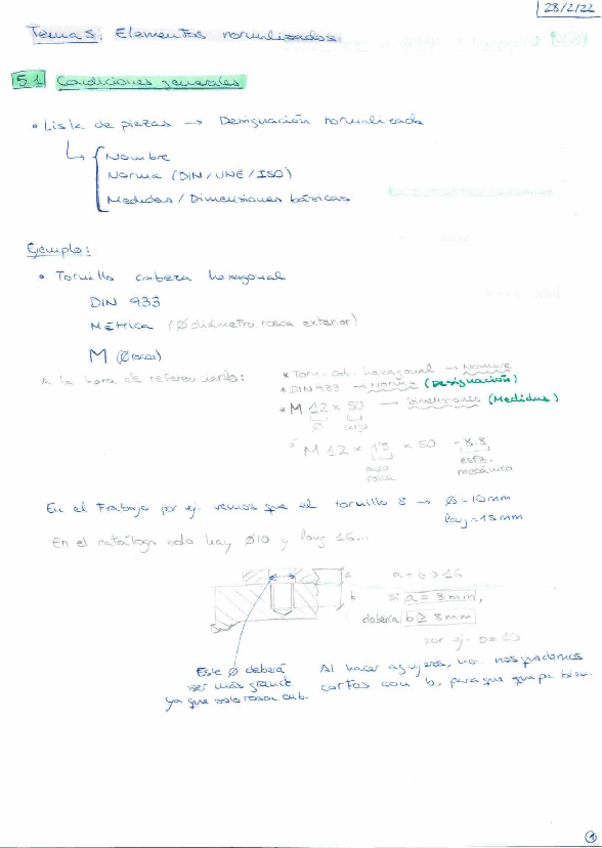 28/2/22
Tema 5: Elementos normalizados
5.1 Condiciones generales
• Lista de piezas → Designación normalizada
Nombre
Norma (DIN/UNE/ISO)
Medidas / Dimensiones básicas
Ejemplo:
• Tornillo cabeza hexagonal
DIN 933
Métrica (Ø diámetro rosca exterior)
M (Ø rosca)
A la hora de referenciarlo:
* Torn. cab. hexagonal → Nombre
* DIN 933 → Norma (Designación)
* M 12 × 50 → Dimensiones (Medidas)
Ø largo
ó M 12 × 1'5 × 50 - 8.8
paso rosca
mecánico
En el trabajo por ej. vemos que el tornillo 8 → Ø = 10 mm
long = 15 mm
En el catálogo solo hay Ø10 y long 16...
a
b
a + b > 16
si a = 8 mm,
debería b ≥ 8 mm
por ej. b = 10
Este Ø deberá
ser más grande
ya que solo rosca
Al hacer agujeros, no nos podemos
cortos con b, para que quepa bien.
1